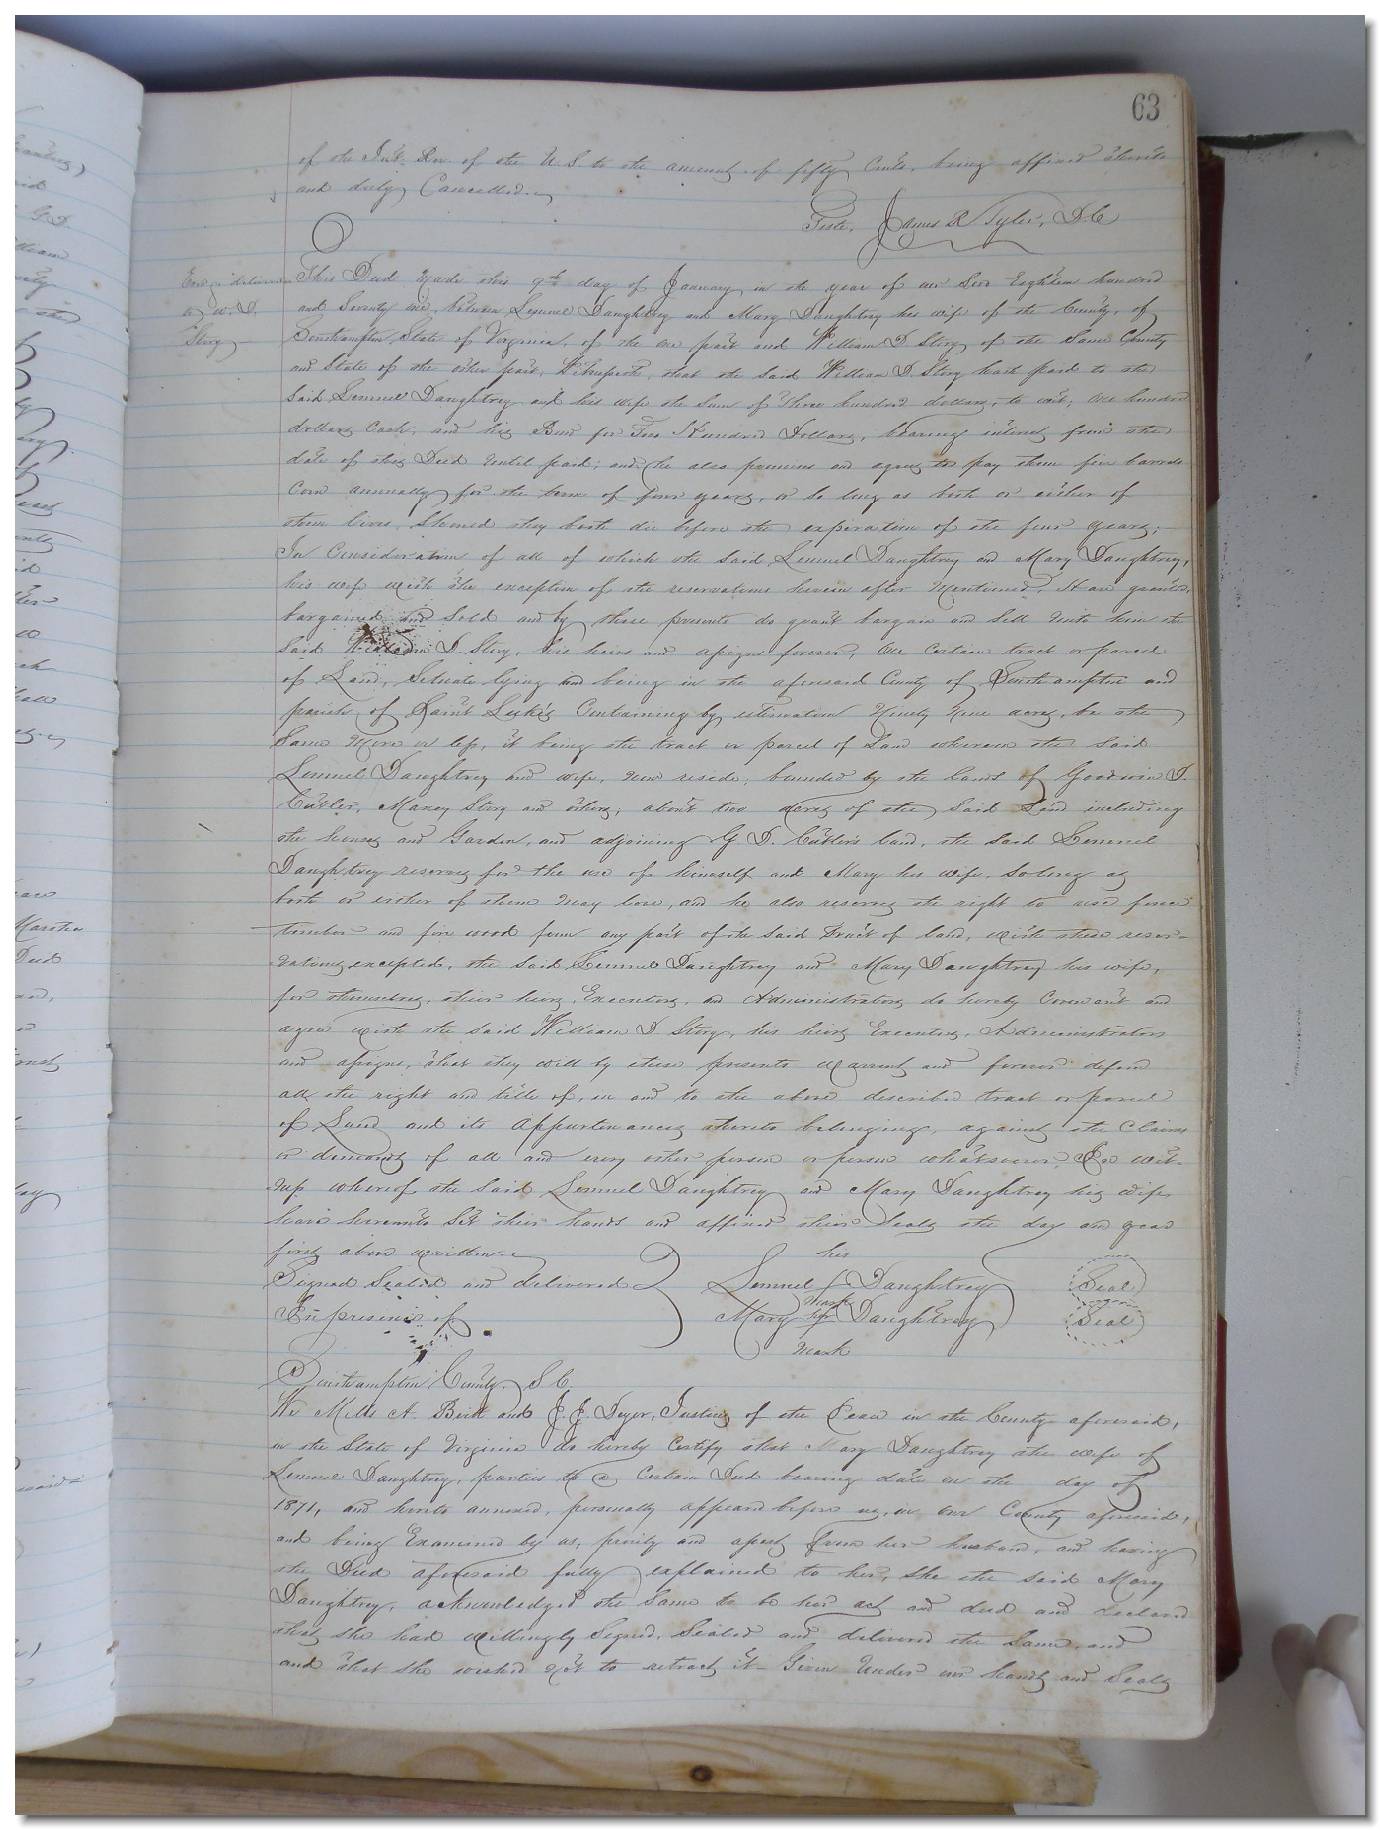 63
of the Int. Rev. of the U.S. to the amount of fifty Cents, being affixed thereto
and duly Cancelled.
Teste, James R Tyler, D.C
This Deed Made this 9th day of January in the year of our Lord Eighteen hundred
Exd. & delivered
to W. D.
Story
and Seventy one, between Lemuel Daughtrey and Mary Daughtrey his wife of the County of
Southampton, State of Virginia, of the one part and William D. Story of the Same County
and State of the other part, Witnesseth, that the Said William D. Story hath paid to the
Said Lemuel Daughtrey and his wife the Sum of three hundred dollars, to wit; One hundred
dollars Cash, and his Bond for Two Hundred Dollars, bearing interest from the
date of this Deed Until paid; and he also promises and agrees to pay them five barrels
Corn annually for the term of four years, or so long as both or either of
them lives, Should they both die before the expiration of the four years;
In Consideration of all of which the Said Lemuel Daughtrey and Mary Daughtrey,
his wife with the exception of the reservations herein after Mentioned, Have granted,
bargained and Sold and by these presents do grant bargain and Sell Unto him the
Said William D Story, his heirs and assigns forever, One Certain tract or parcel
of Land, Situate lying and being in the aforesaid County of Southampton and
parish of Saint Luke's Containing by estimation Ninety Nine acres, be the
Same More or less, it being the tract or parcel of Land whereon the Said
Lemuel Daughtrey and wife, now reside; bounded by the lands of Goodwin D.
Cutler, Maxey Story and others; about two acres of the Said Land including
the houses and Garden, and adjoining G D. Cutler's land, the Said Lemuel
Daughtrey reserves for the use of himself and Mary his wife, So long as
both or either of them May live, and he also reserves the right to use fence
timber and fire wood from any part of the Said tract of land, with these reser-
vations excepted, the Said Lemuel Daughtrey and Mary Daughtrey his wife,
for themselves, their heirs, Executors, and Administrators do hereby Covenant and
agree with the Said William D Story, his heirs Executors, Administrators
and assigns, that they will by these presents Warrant and forever defend
all the right and title of, in and to the above described tract or parcel
of Land and its Appurtenances thereto belonging, against the Claims
or demands of all and every other person or persons whatsoever, In wit-
ness whereof the Said Lemuel Daughtrey and Mary Daughtrey his wife
have hereunto Set their hands and affixed their Seals the day and year
first above written
his
Signed Sealed and delivered Lemuel Daughtrey Seal
mark
In presence of Mary her Daughtrey Seal
Mark
Southampton County, S C.
We Mills A. Britt and J. J. Deyer, Justices of the Peace in the County aforesaid,
in the State of Virginia do hereby Certify that Mary Daughtrey the wife of
Lemuel Daughtrey, parties to a Certain Deed bearing date on the day of
1871, and hereto annexed, personally appeared before us, in our County aforesaid,
and being Examined by us, privily and apart from her husband, and having
the Deed aforesaid fully explained to her, She the said Mary
Daughtrey, acknowledged the Same to be her act and deed and declared
that She had willingly Signed, Sealed and delivered the Same, and
and that She wished not to retract it - Given Under our hands and Seals